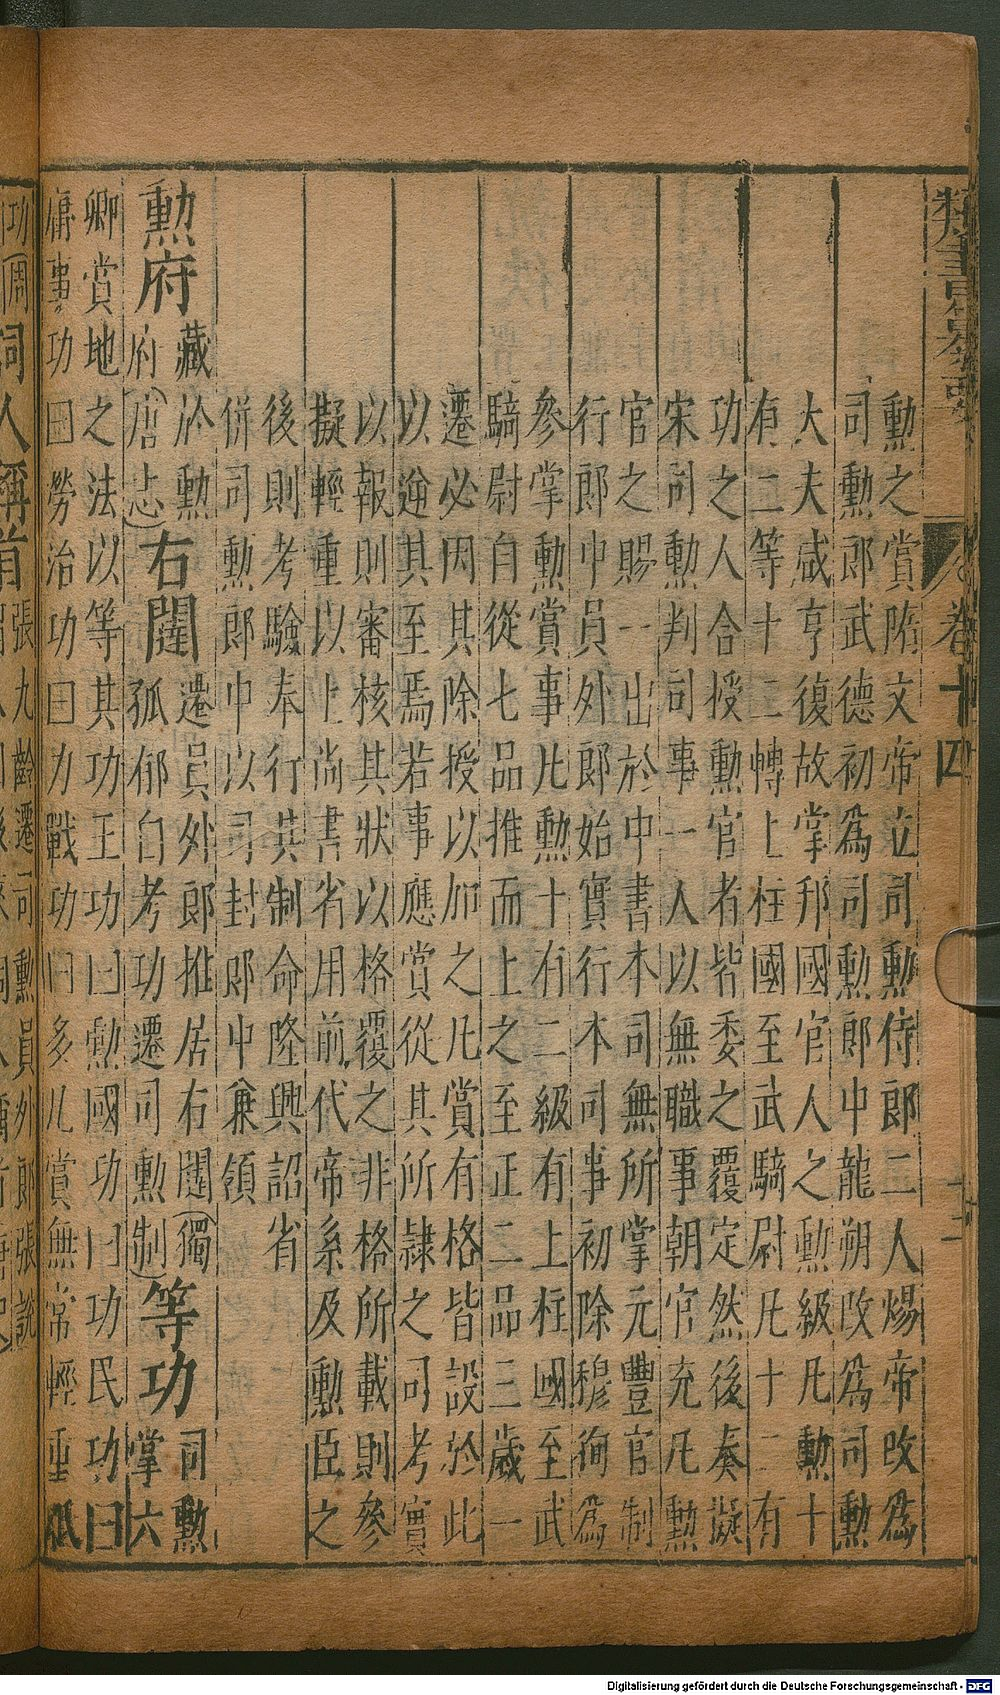 卷十四
勲之賞隋文帝立司勲侍郎二人煬帝改爲
司勲郎武德初爲司勲郎中龍朔改爲司勲
大夫咸亨復故掌邦國官人之勲級凡勲十
有二等十二轉上柱國至武騎尉凡十二有
功之人合授勲官者皆委之覆定然後奏擬
宋司勲判司事一人以無職事朝官充凡勲
官之賜一出於中書本司無所掌元豐官制
行郎中員外郎始實行本司事初除穆徇爲
參掌勲賞事凡勲十有二級有上柱國至武
騎尉自從七品推而上之至正二品三歲一
遷必因其除授以加之凡賞有格皆設於此
以逆其至焉若事應賞從其所隷之司考實
以報則審核其狀以格覆之非格所載則參
擬輕重以上尚書省用前代帝系及勲臣之
後則考驗奉行其制命隆興詔省
併司勲郎中以司封郎中兼領
勲府
藏於勲
府(唐志)
右闥
遷員外郎推居右闥(獨
孤郁自考功遷司勲制)
等功
司勲
掌六
卿賞地之法以等其功王功曰勲國功曰功民功曰
庸事功曰勞治功曰力戰功曰多凡賞無常輕重眡
功
詞人稱首
張九齡遷司勲員外郎張說
Digitalisierung gefördert durch die Deutsche Forschungsgemeinschaft - DFG